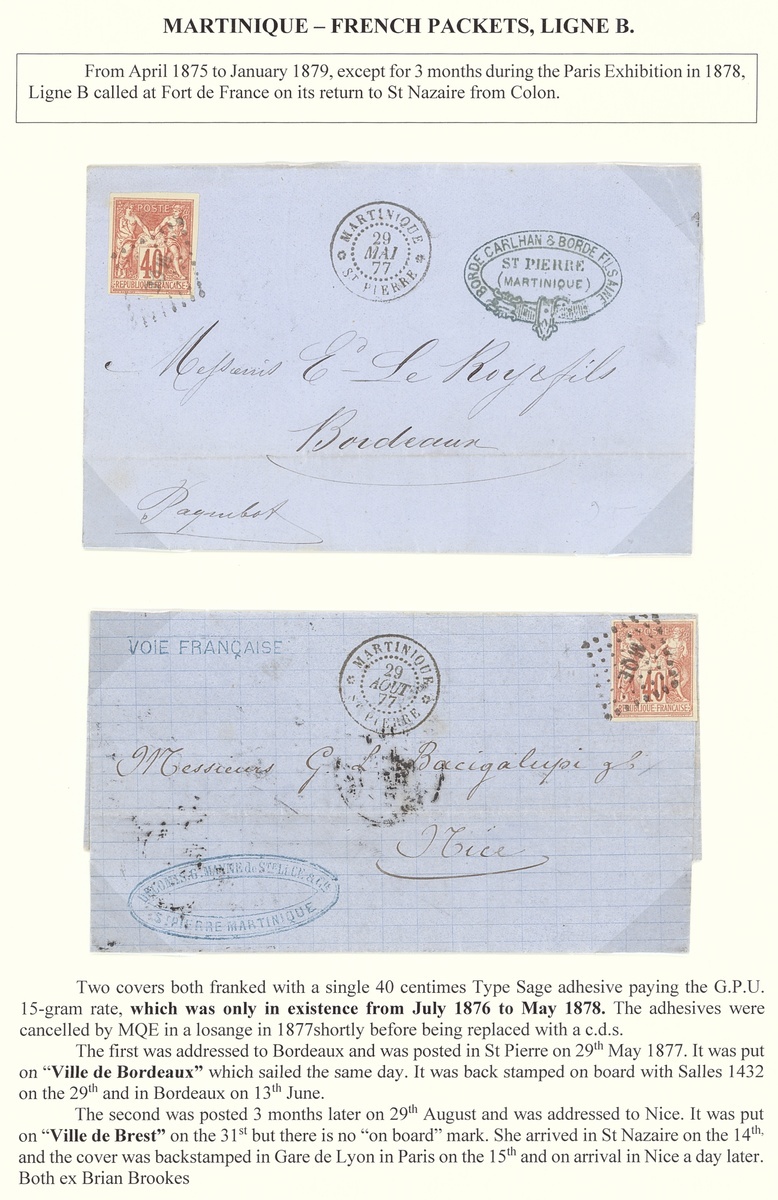 MARTINIQUE – FRENCH PACKETS, LIGNE B.
From April 1875 to January 1879, except for 3 months during the Paris Exhibition in 1878,
Ligne B called at Fort de France on its return to St Nazaire from Colon.
POSTE
40
REPUBLIQUE FRANCAISE
MARTINIQUE
29
MAI
77
ST PIERRE
BORDE CARLHAN & BORDE FILS AINÉ
ST PIERRE
(MARTINIQUE)
Messieurs Ed Le Roy & fils
Bordeaux
Paquebot
VOIE FRANÇAISE
MARTINIQUE
29
AOUT
77
ST PIERRE
MQE
40
REPUBLIQUE FRANCAISE
Messieurs G. L. Bacigalupi
Nice
ST PIERRE MARTINIQUE
Two covers both franked with a single 40 centimes Type Sage adhesive paying the G.P.U.
15-gram rate, which was only in existence from July 1876 to May 1878. The adhesives were
cancelled by MQE in a losange in 1877shortly before being replaced with a c.d.s.
The first was addressed to Bordeaux and was posted in St Pierre on 29th May 1877. It was put
on “Ville de Bordeaux” which sailed the same day. It was back stamped on board with Salles 1432
on the 29th and in Bordeaux on 13th June.
The second was posted 3 months later on 29th August and was addressed to Nice. It was put
on “Ville de Brest” on the 31st but there is no “on board” mark. She arrived in St Nazaire on the 14th,
and the cover was backstamped in Gare de Lyon in Paris on the 15th and on arrival in Nice a day later.
Both ex Brian Brookes